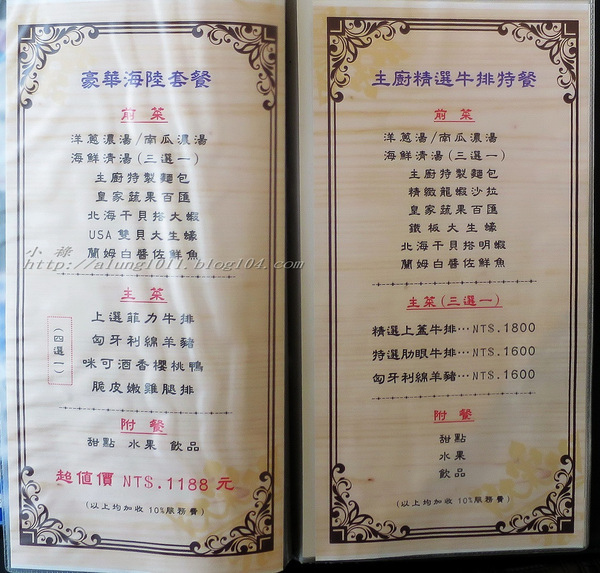 豪華海陸套餐
前菜
洋蔥濃湯/南瓜濃湯
海鮮清湯(三選一)
主廚特製麵包
皇家蔬果百匯
北海干貝搭大蝦
USA 雙貝大生蠔
蘭姆白醬佐鮮魚
主菜
(四選一)
上選菲力牛排
匈牙利綿羊豬
咪可酒香櫻桃鴨
脆皮嫩雞腿排
附餐
甜點 水果 飲品
超值價 NT$.1188 元
(以上均加收 10%服務費)
主廚精選牛排特餐
前菜
洋蔥濃湯/南瓜濃湯
海鮮清湯(三選一)
主廚特製麵包
精緻龍蝦沙拉
皇家蔬果百匯
鐵板大生蠔
北海干貝搭明蝦
蘭姆白醬佐鮮魚
主菜(三選一)
精選上蓋牛排…NT$.1800
特選肋眼牛排…NT$.1600
匈牙利綿羊豬…NT$.1600
附餐
甜點
水果
飲品
(以上均加收 10%服務費)
小祿
http://alung1011.blog104.com